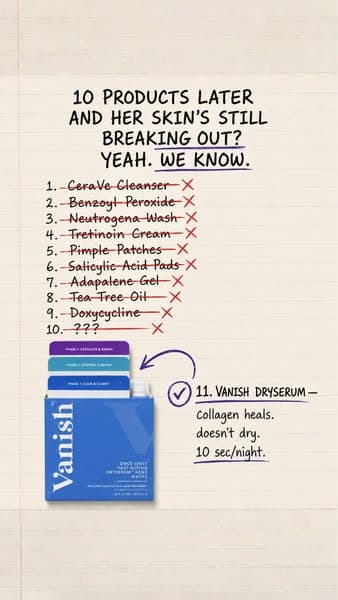 10 PRODUCTS LATER
AND HER SKIN'S STILL
BREAKING OUT?
YEAH. WE KNOW.
1. CeraVe Cleanser
2. Benzoyl Peroxide
3. Neutrogena Wash
4. Tretinoin Cream
5. Pimple Patches
6. Salicylic Acid Pads
7. Adapalene Gel
8. Tea Tree Oil
9. Doxycycline
10. ???
11. VANISH DRYSERUM—
collagen heals.
doesn't dry.
10 sec/night.
Vanish
ONCE DAILY
FAST ACTING
DRYSERUM ACNE
MASKS